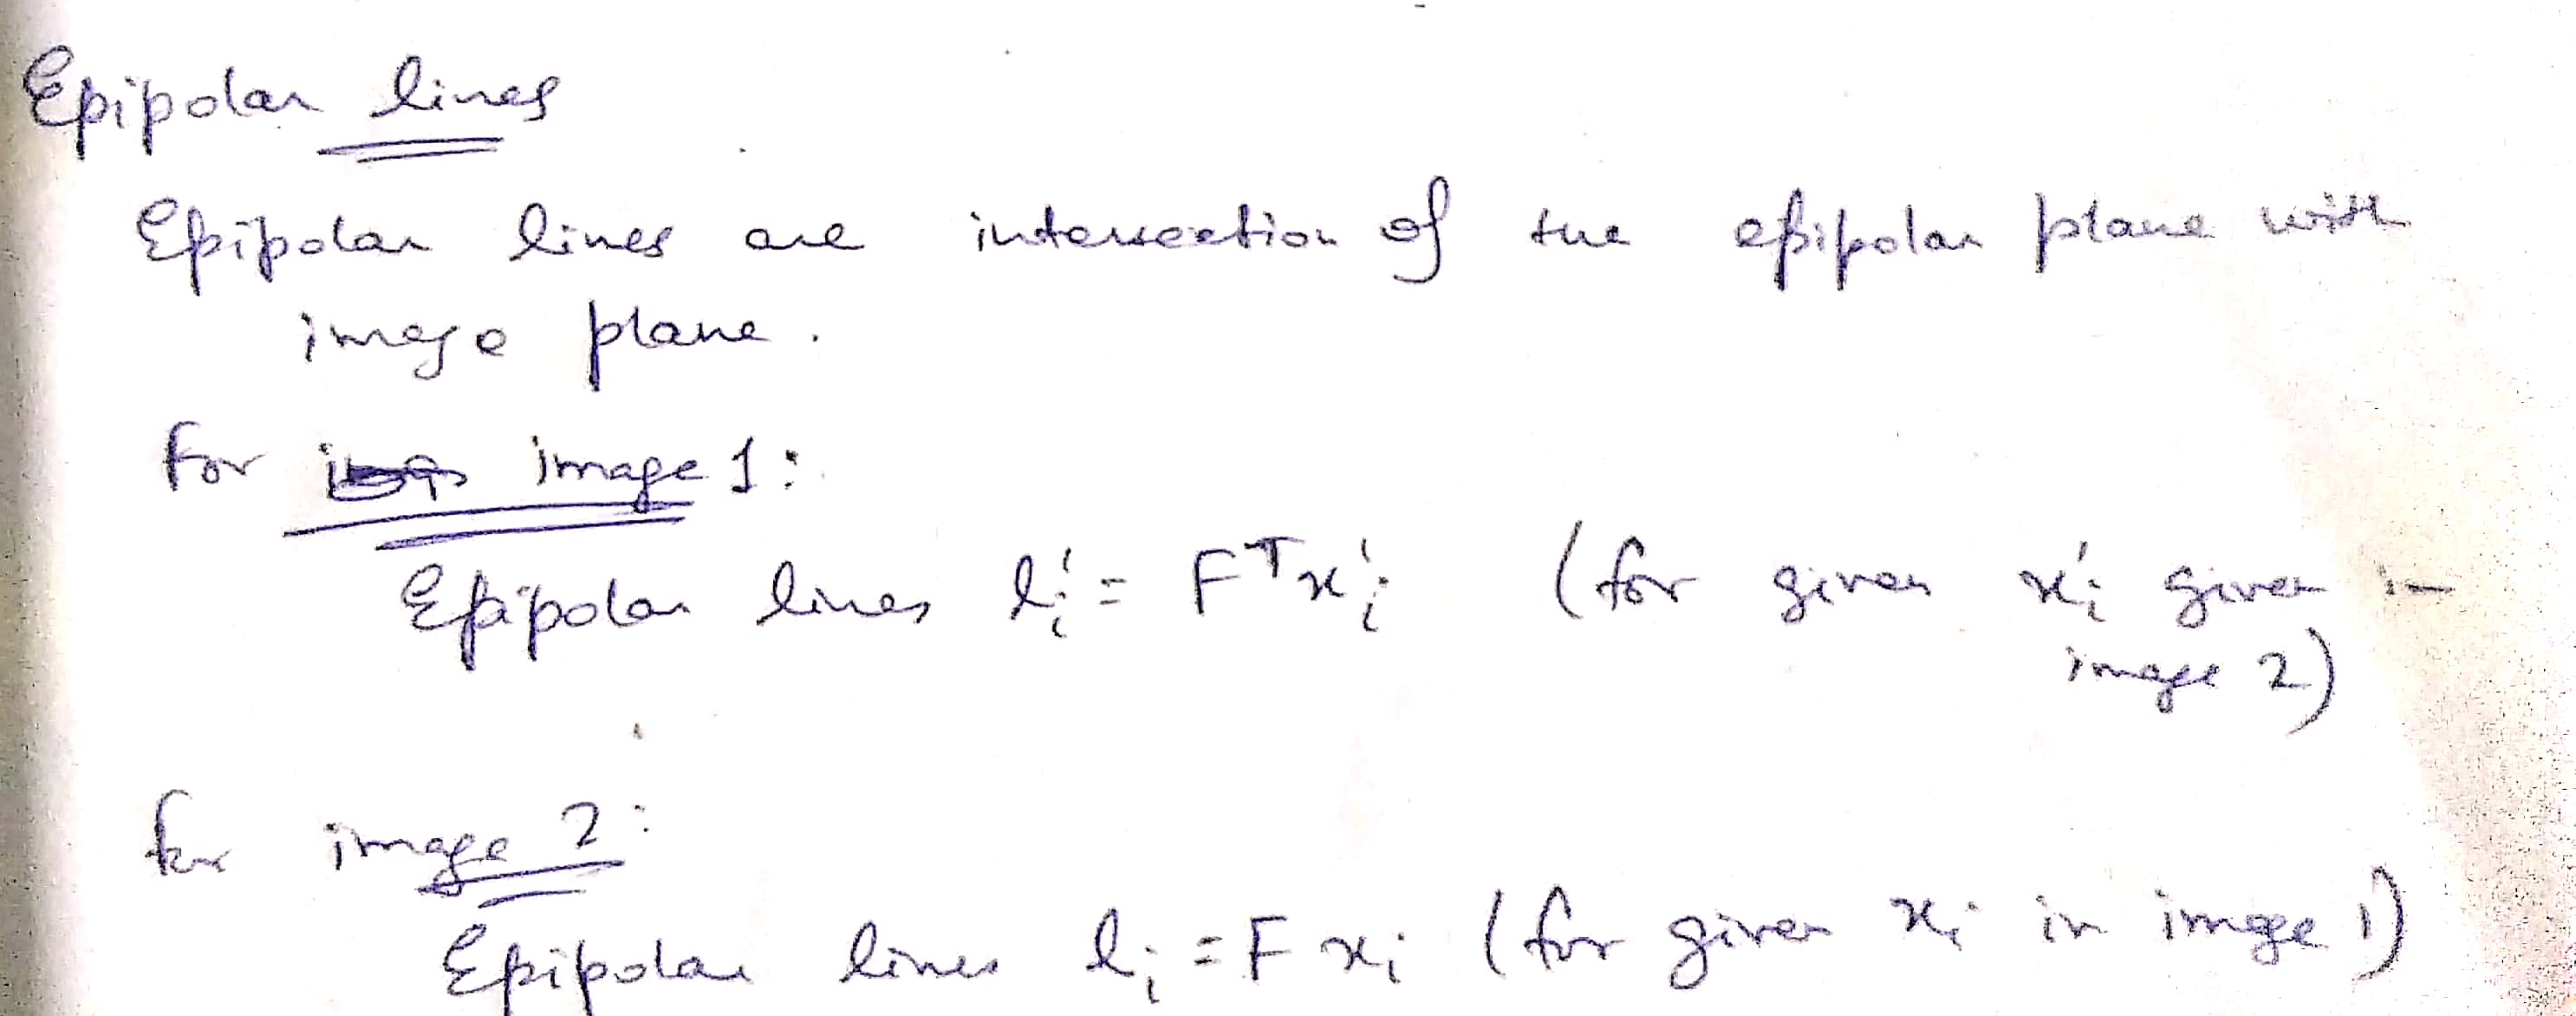 Epipolar lines
Epipolar lines are intersection of the epipolar plane with
image plane.
For image 1:
Epipolar lines lᵢ' = Fᵀxᵢ' (for given xᵢ' given in
image 2)
for image 2:
Epipolar lines lᵢ = F xᵢ (for given xᵢ in image 1)